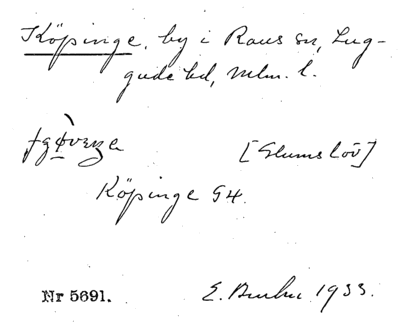 Köpinge, by i Raus sn, Lug-
gude hd, Mlm. l.
[Glumslöv]
Köpinge G4.
Nr 5691. E. 1933.